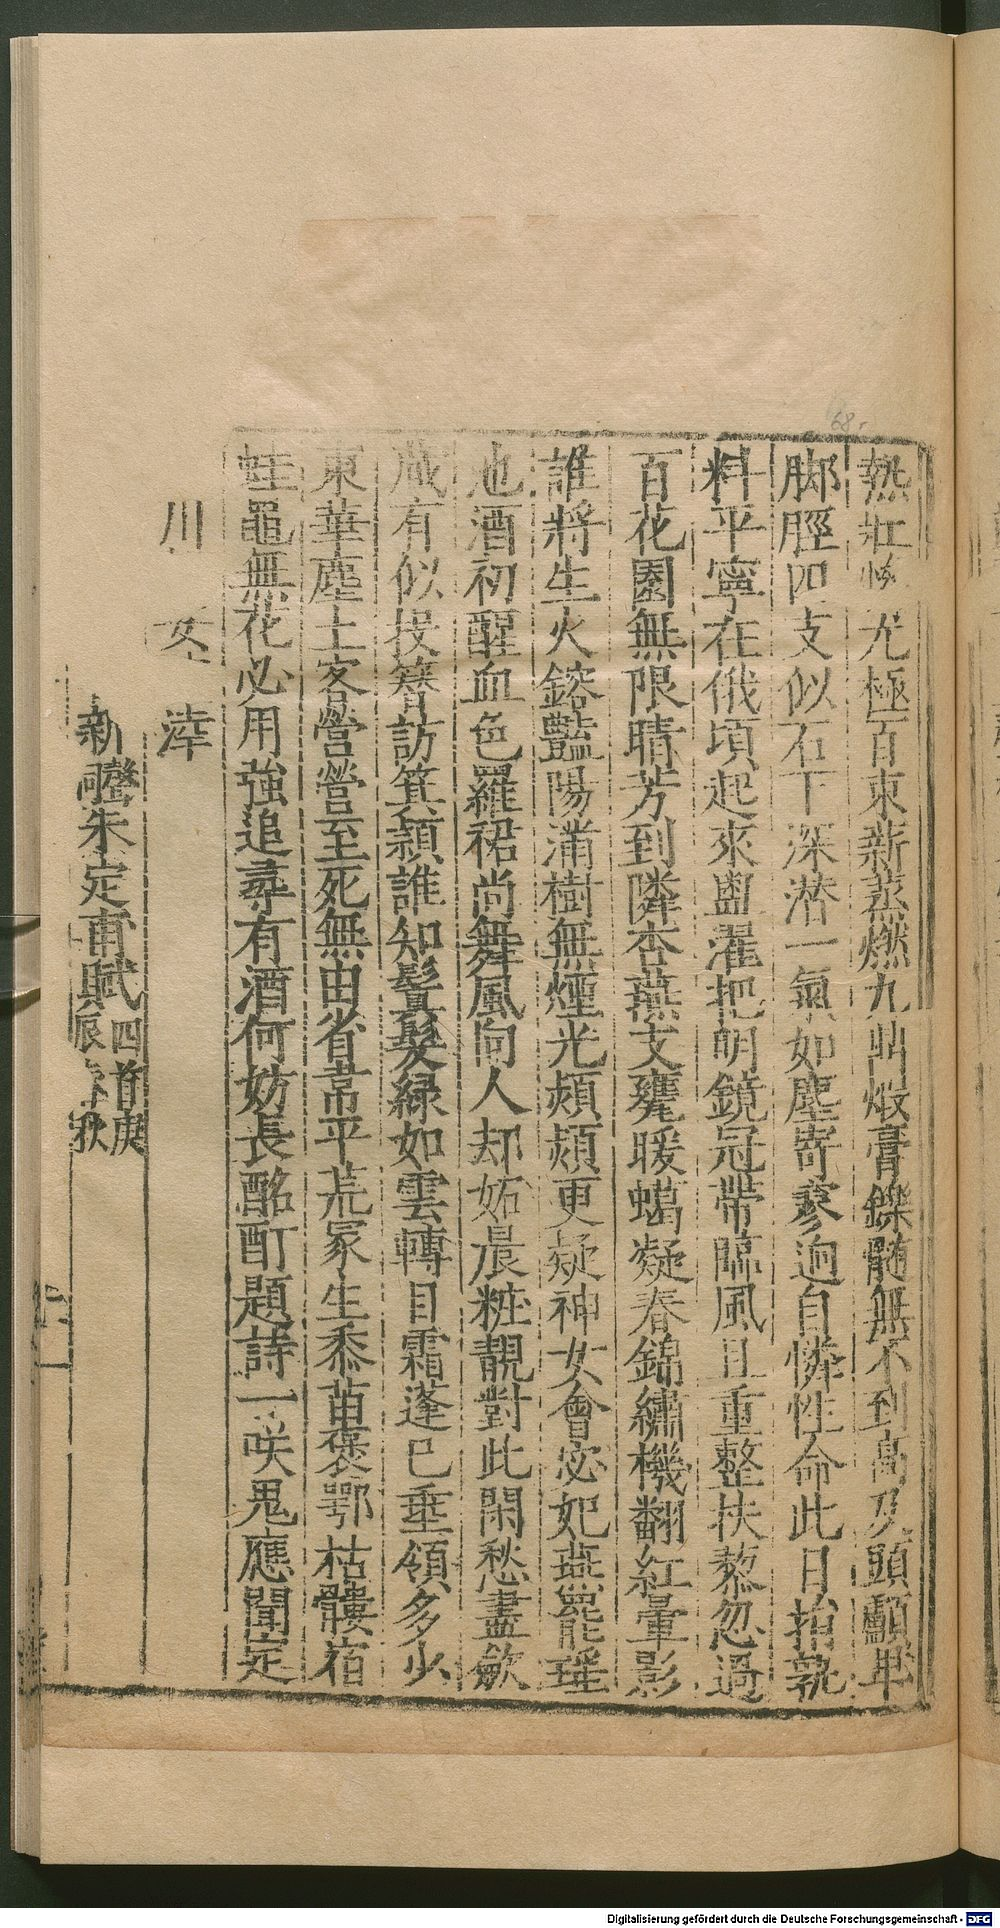 熱壯惔尤極百束薪蒸燃九鼎煅膏鑠髓無不到高及頭顱卑
脚脛四支似石下深潜一氣如塵寄寥逈自憐性命此日拍孰
料平寧在俄頃起來盥濯把明鏡冠帶臨風且重整扶藜忽過
百花園無限晴芳到隣杏燕支甕暖蠟凝春錦繡機翻紅暈影
誰將生火鎔豔陽滿樹無煙光熲熲更疑神女會宓妃燕罷瑶
池酒初醒血色羅裙尚舞風向人却妬晨粧靚對此閑愁盡歛
藏有似投簪訪箕潁誰知鬢髮緑如雲轉目霜蓬已垂領多少
東華塵土客營營至死無由省常平荒冢生黍苗褒鄂枯髏宿
蛙黽無花必用強追尋有酒何妨長酩酊題詩一咲鬼應聞定
川 女 涬
新礱朱定甫賦四首庚辰春秋